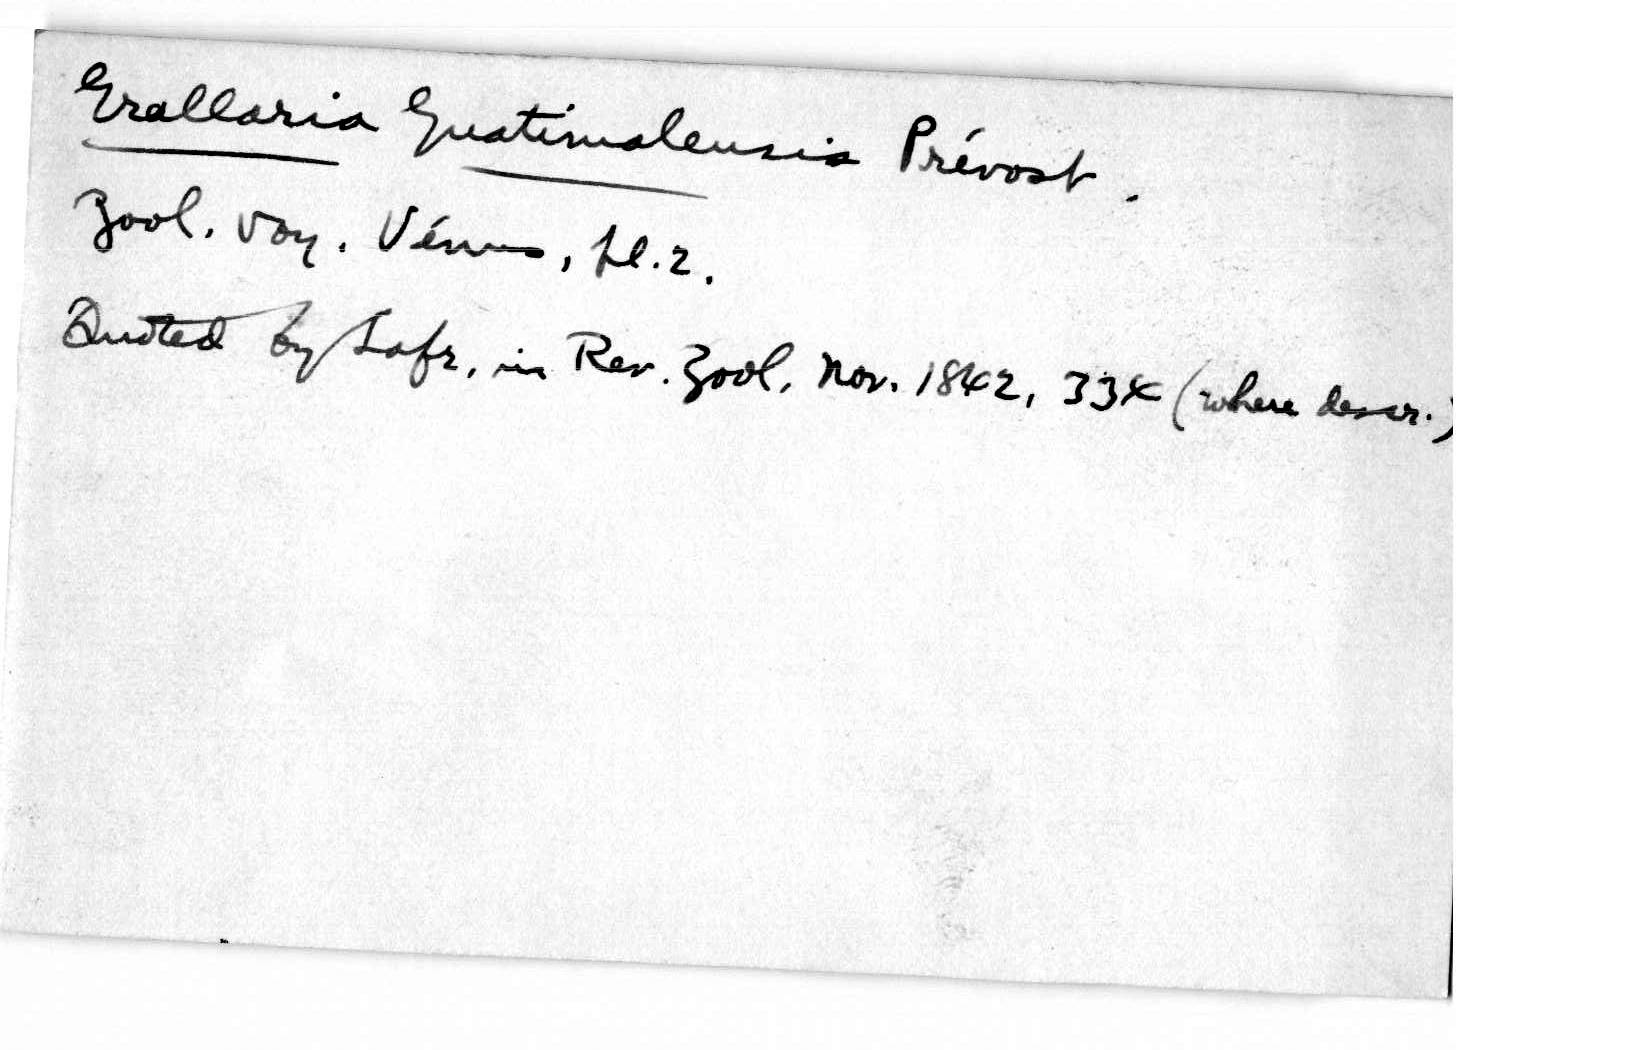 Grallaria Guatimalensis Prévost.
Zool. Voy. Vénus, pl. 2.
Quoted by Lafr., in Rev. Zool. Nov. 1842, 334 (where descr.)